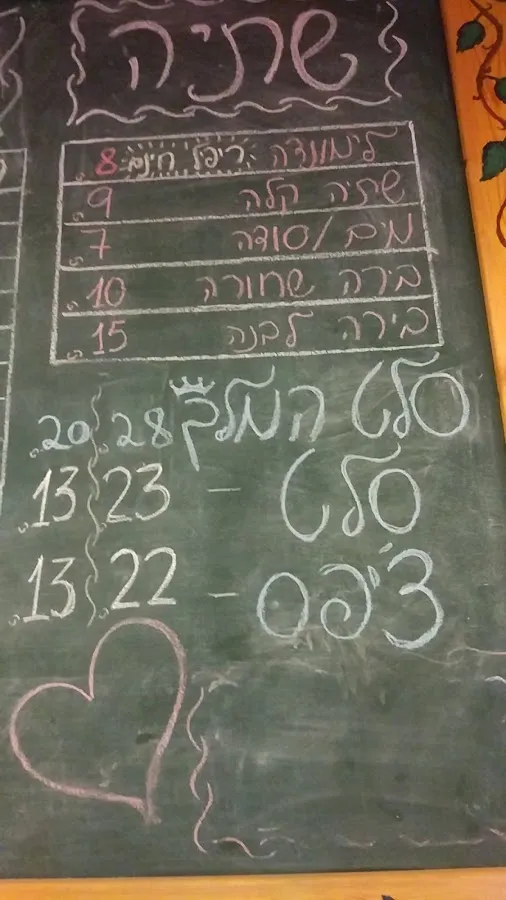 שתיה
לימונדה ריפיל חינם 8
שתיה קלה 9
מים/סודה 7
בירה שחורה 10
בירה לבנה 15
סלט המלך 28 20
סלט - 23 13
צ'יפס - 22 13